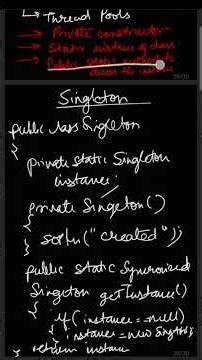 ↳ Thread Pools
→ Private constructor
→ Static instance of class
→ Public static method to
access the instance
20/20
Singleton
public class Singleton
{
private static Singleton
instance;
private Singleton()
{
sopln("created");
}
public static Syncronized
Singleton getInstance()
{
if (instance==null)
{ instance=new Singleton();
} return instance
20/20